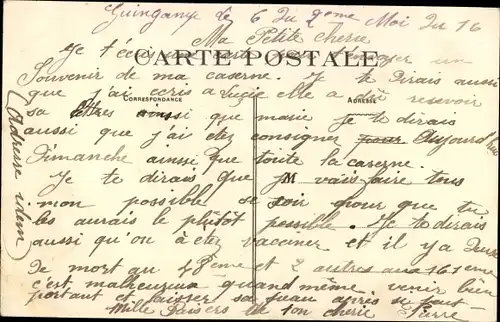 Guingamp le 6 du 2eme Moi du 16
Ma Petite cherie
CARTE POSTALE
Je t'écris une carte un
Souvenir de ma caserne. Je te dirais aussi
que j'ai écris a Lucie elle a dût resevoir
CORRESPONDANCE
ADRESSE
sa lettres ainsi que marie je te dirais
aussi que j'ai etez consigner pour Aujourd'hui
Dimanche ainsi que toute la caserne.
Je te dirais que je vais faire tous
mon possible se soir pour que tu
les aurais le plutôt possible. Je te dirais
aussi qu'on à étez vacciner et il y a deux
de mort au 48eme et 2 autres aux 161eme
c'est malheureux quand même venir bien
portant et laisser sa peau après se
Mille Baisers de ton cherie Pierre
(Adresse idem)